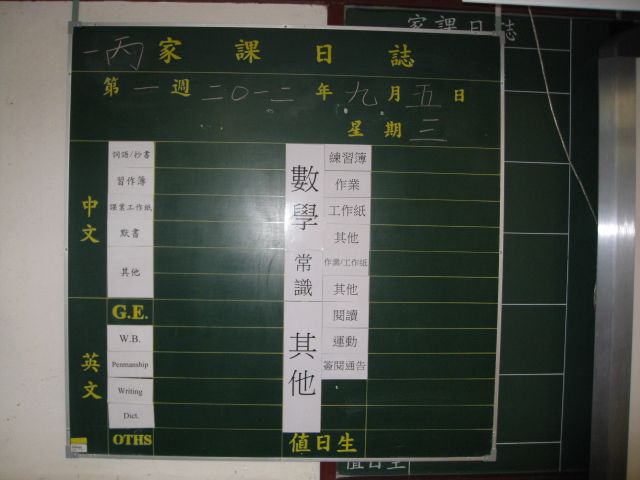 一丙 家課日誌
第一週 二〇一二年九月五日
星期三
中文
詞語/抄書
習作簿
課業工作紙
默書
其他
英文
G.E.
W.B.
Penmanship
Writing
Dict.
OTHS
數學
練習簿
作業
工作紙
其他
常識
作業/工作紙
其他
其他
閱讀
運動
簽閱通告
值日生
家課日誌
值日生